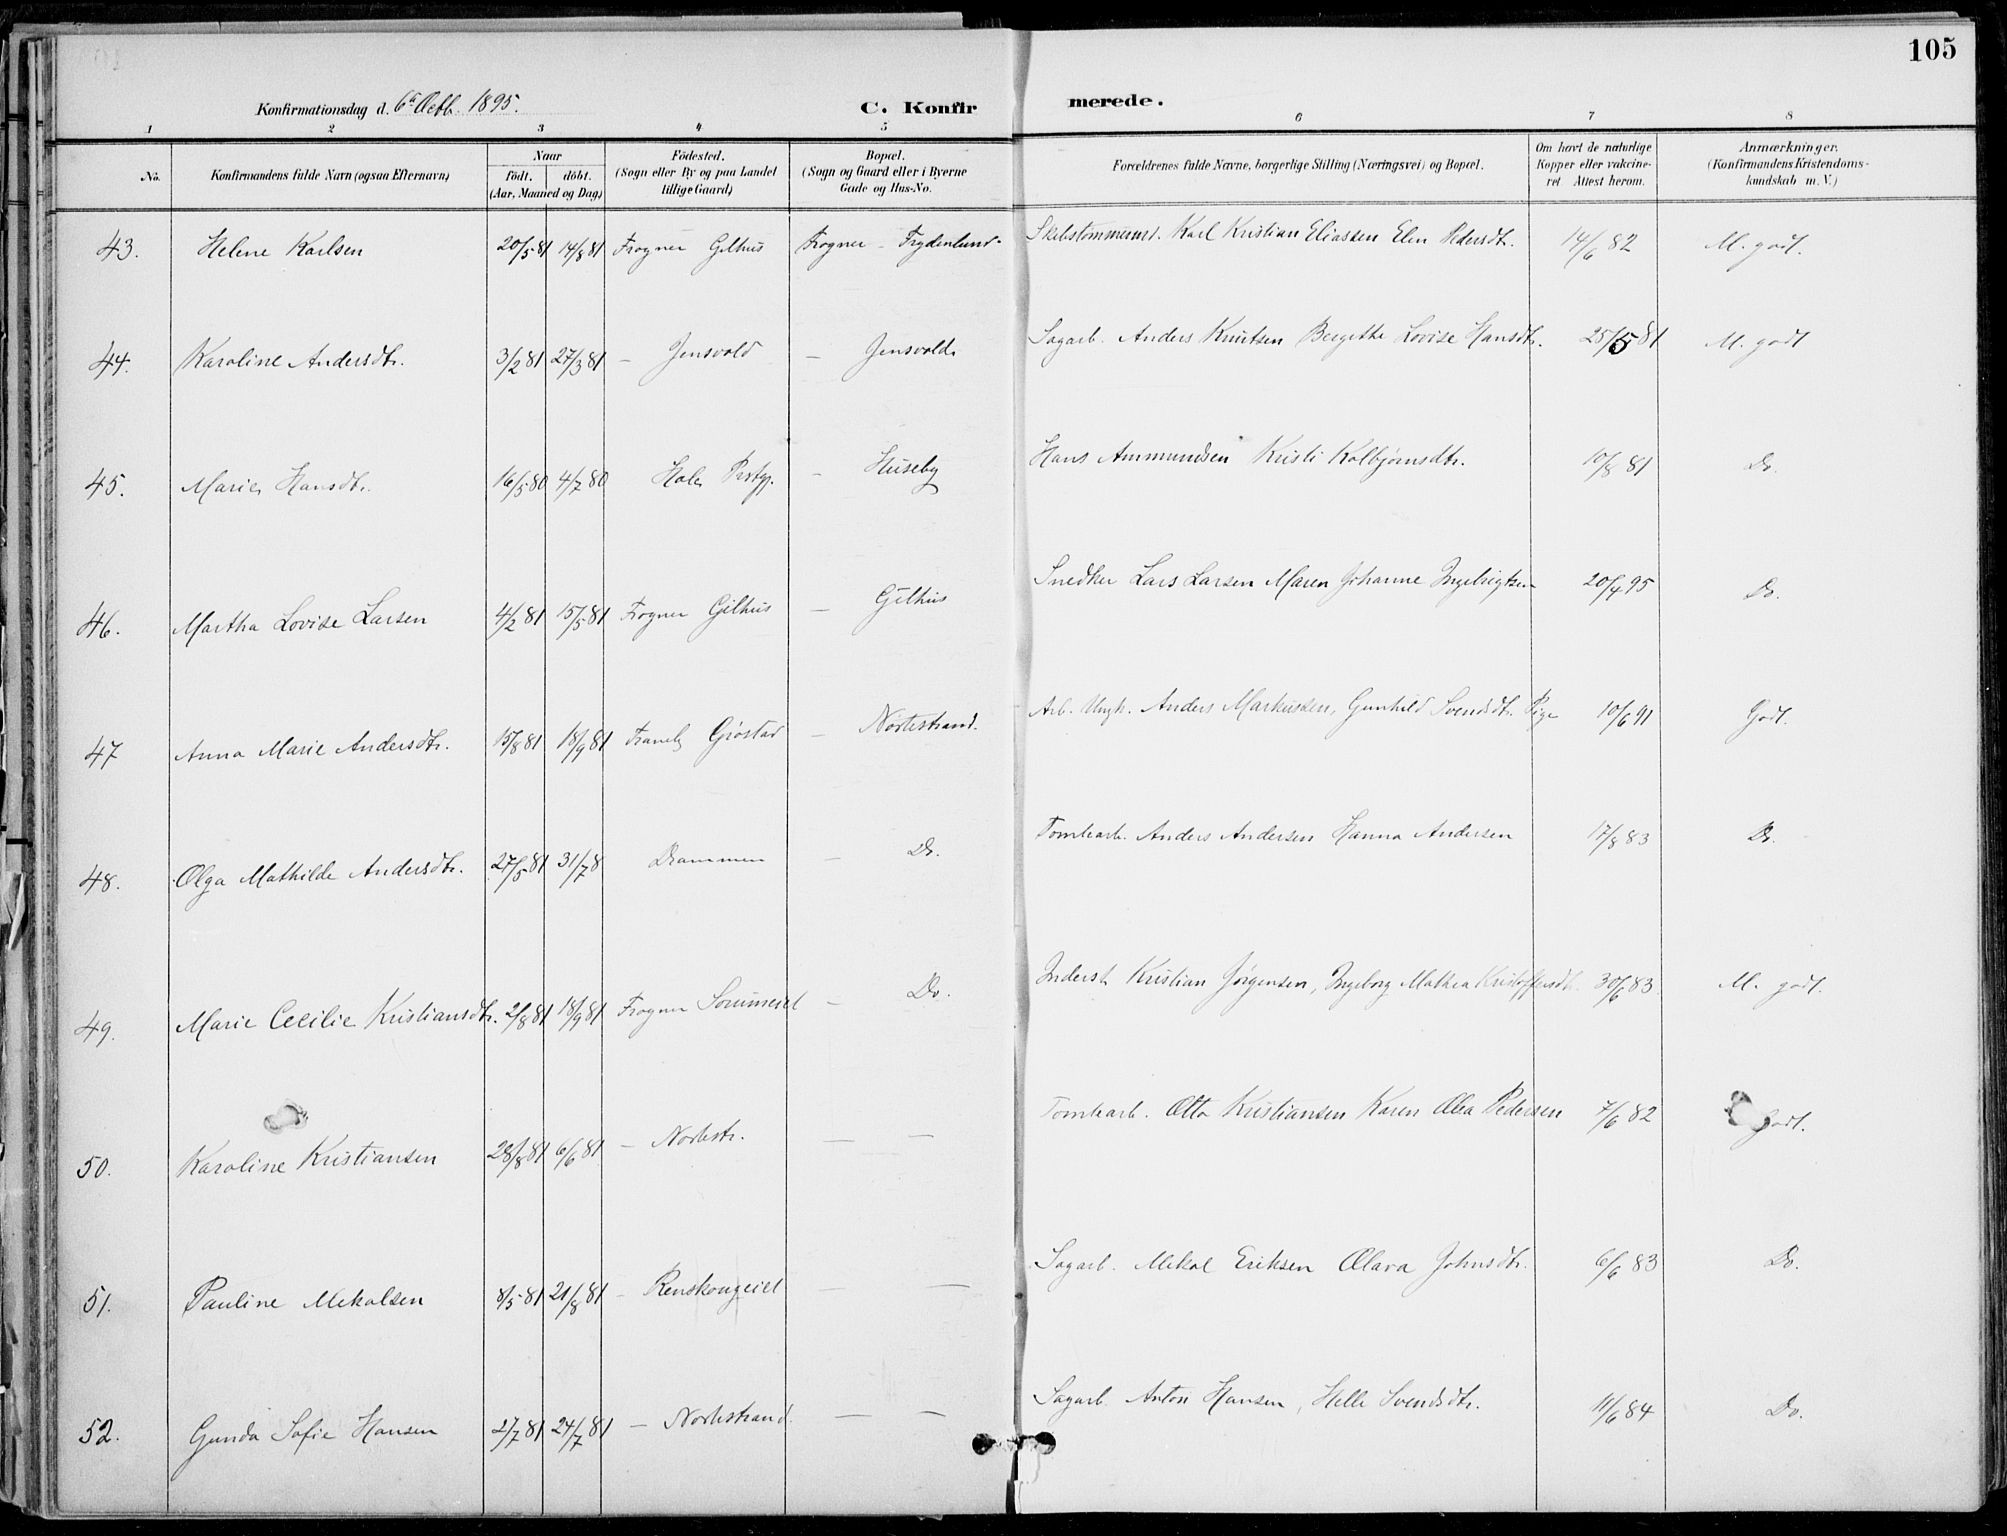 105
Konfirmationsdag d. 6te Octb. 1895.
C. Konfir merede.
1 2 3 4 5 6 7 8
No. Konfirmandens fulde Navn (ogsaa Efternavn) Naar födt. döbt. (Aar, Maaned og Dag) Födested. (Sogn eller By og paa Landet tillige Gaard) Bopæl. (Sogn og Gaard eller i Byerne Gade og Hus-No. Forældrenes fulde Navne, borgerlige Stilling (Næringsvei) og Bopæl. Om havt de naturlige Kopper eller vakcineret Attest herom. Anmærkninger. (Konfirmandens Kristendomskundskab m. V.)
43. Helene Karlsen 20/5 81 14/8 81 Frogner Gilhus Frogner - Frydenlund. Skibstømmermd. Karl Kristian Eliassen Elen Pedersdtr. 14/6 82 M. godt.
44. Karoline Andersdtr. 3/2 81 27/3 81 — Jensvold — Jensvold. Sagarb. Anders Knutsen Bergethe Lovise Hansdtr. 25/5 81 M. godt
45. Marie Hansdtr. 16/5 80 4/7 80 Hole Prstgj. — Huseby Hans Ammundsen Kristi Kolbjørnsdtr. 10/8 81 Do.
46. Martha Lovise Larsen 4/2 81 15/5 81 Frogner Gilhus — Gilhus Snedker Lars Larsen Maren Johanne Ingebrigtsen 20/4 95 Do.
47 Anna Marie Andersdtr. 15/8 81 18/9 81 Tranby Grøstad — Nordstrand. Arb. Ungk. Anders Markussen, Gunhild Svendsdtr. Pige 10/6 91 Godt.
48. Olga Mathilde Andersdtr. 27/5 81 31/7 8 Drammen — Do. Tomtearb. Anders Andersen Hanna Andersen 17/8 83 Do.
49. Marie Cecilie Kristiansdtr. 2/8 81 18/9 81 Frogner — Do. Inderst Kristian Jørgensen, Ingeborg Mathea Kristoffersdtr. 30/6 83 M. godt.
50. Karoline Kristiansen 28/8 81 6/6 81 — Nordstr. — — Tomtearb. Otto Kristiansen Karen Olea Pedersen 7/6 82 Godt.
51. Pauline Mekalsen 8/5 81 21/8 81 — Renskougeiet — — Sagarb. Mekal Eriksen Olava Johnsdtr. 6/6 83 Do.
52. Gunda Sofie Hansen 2/7 81 24/7 81 — Nordstrand. — — Sagarb. Anton Hansen, Helle Svendsdtr. 11/6 84 Do.